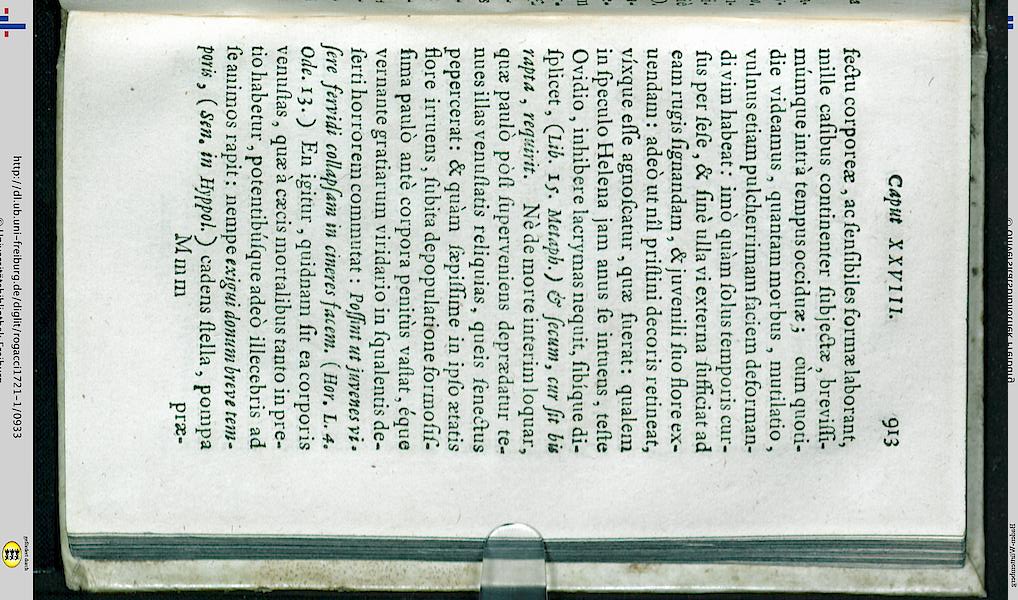 Caput XXVIII. 913
fectu corporeæ, ac ſenſibiles formæ laborant,
mille caſibus continenter ſubjectæ, breviſſi-
múmque intrà tempus occiduæ; cùm quoti-
die videamus, quantam morbus, mutilatio,
vulnus etiam pulcherrimam faciem deforman-
di vim habeat: imò quàm ſolus temporis cur-
ſus per ſeſe, & ſinè ulla vi externa ſufficiat ad
eam rugis ſignandam, & juvenili ſuo flore ex-
uendam: adeò ut nîl priſtini decoris retineat,
víxque eſſe agnoſcatur, quæ fuerat: qualem
in ſpeculo Helena jam anus ſe intuens, teſte
Ovidio, inhibere lacrymas nequit, ſibique di-
ſplicet, (Lib. 15. Metaph.) & ſecum, cur ſit bis
rapta, requirit. Nè de morte interim loquar,
quæ paulò pòſt ſuperveniens deprædatur te-
nues illas venuſtatis reliquias, queis ſenectus
pepercerat: & quàm ſæpiſſime in ipſo ætatis
flore irruens, ſubita depopulatione formoſiſ-
ſima paulò antè corpora penitùs vaſtat, éque
vernante gratiarum viridario in ſqualentis de-
ſerti horrorem commutat: Poſſint ut juvenes vi-
ſere fervidi collapſam in cineres facem. (Hor. L. 4.
Ode. 13.) En igitur, quidnam ſit ea corporis
venuſtas, quæ à cæcis mortalibus tanto in pre-
tio habetur, potentibuſque adeò illecebris ad
ſe animos rapit: nempe exigui donum breve tem-
poris, (Sen. in Hyppol.) cadens ſtella, pompa
Mmm præ-
http://dl.ub.uni-freiburg.de/diglit/rogacci1721-1/0933